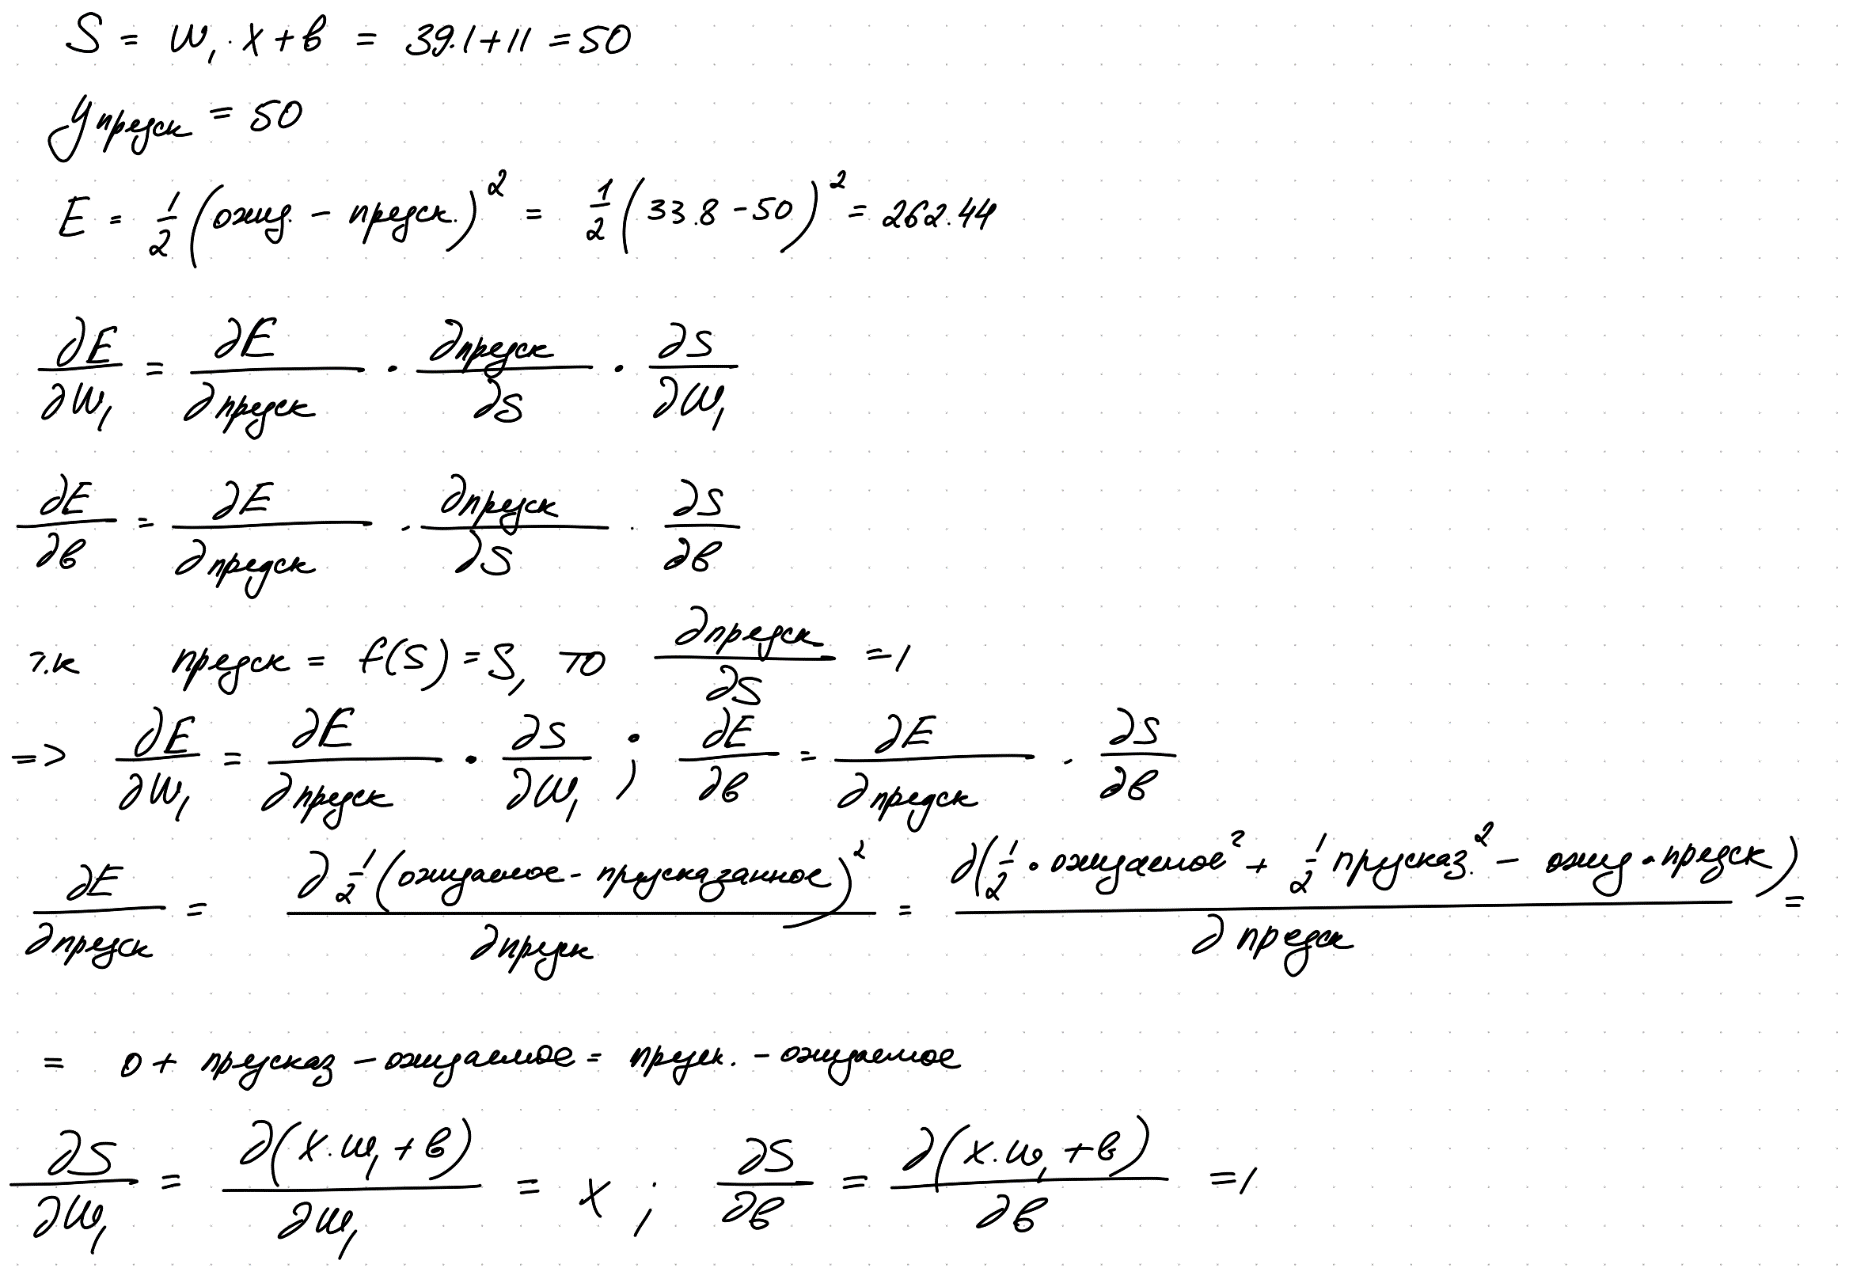 S = w₁ · x + в = 39·1 + 11 = 50
y предск = 50
E = 1/2 (ожид. − предск.)² = 1/2 (33.8 − 50)² = 262.44
∂E/∂w₁ = ∂E/∂предск · ∂предск/∂S · ∂S/∂w₁
∂E/∂в = ∂E/∂предск · ∂предск/∂S · ∂S/∂в
т.к предск = f(S) = S, то ∂предск/∂S = 1
=> ∂E/∂w₁ = ∂E/∂предск · ∂S/∂w₁ ; ∂E/∂в = ∂E/∂предск · ∂S/∂в
∂E/∂предск = ∂ 1/2 (ожидаемое − предсказанное)²/∂предск = ∂(1/2 · ожидаемое² + 1/2 предсказ.² − ожид · предск)/∂предск =
= 0 + предсказ − ожидаемое = предск. − ожидаемое
∂S/∂w₁ = ∂(x · w₁ + в)/∂w₁ = x ; ∂S/∂в = ∂(x · w₁ + в)/∂в = 1